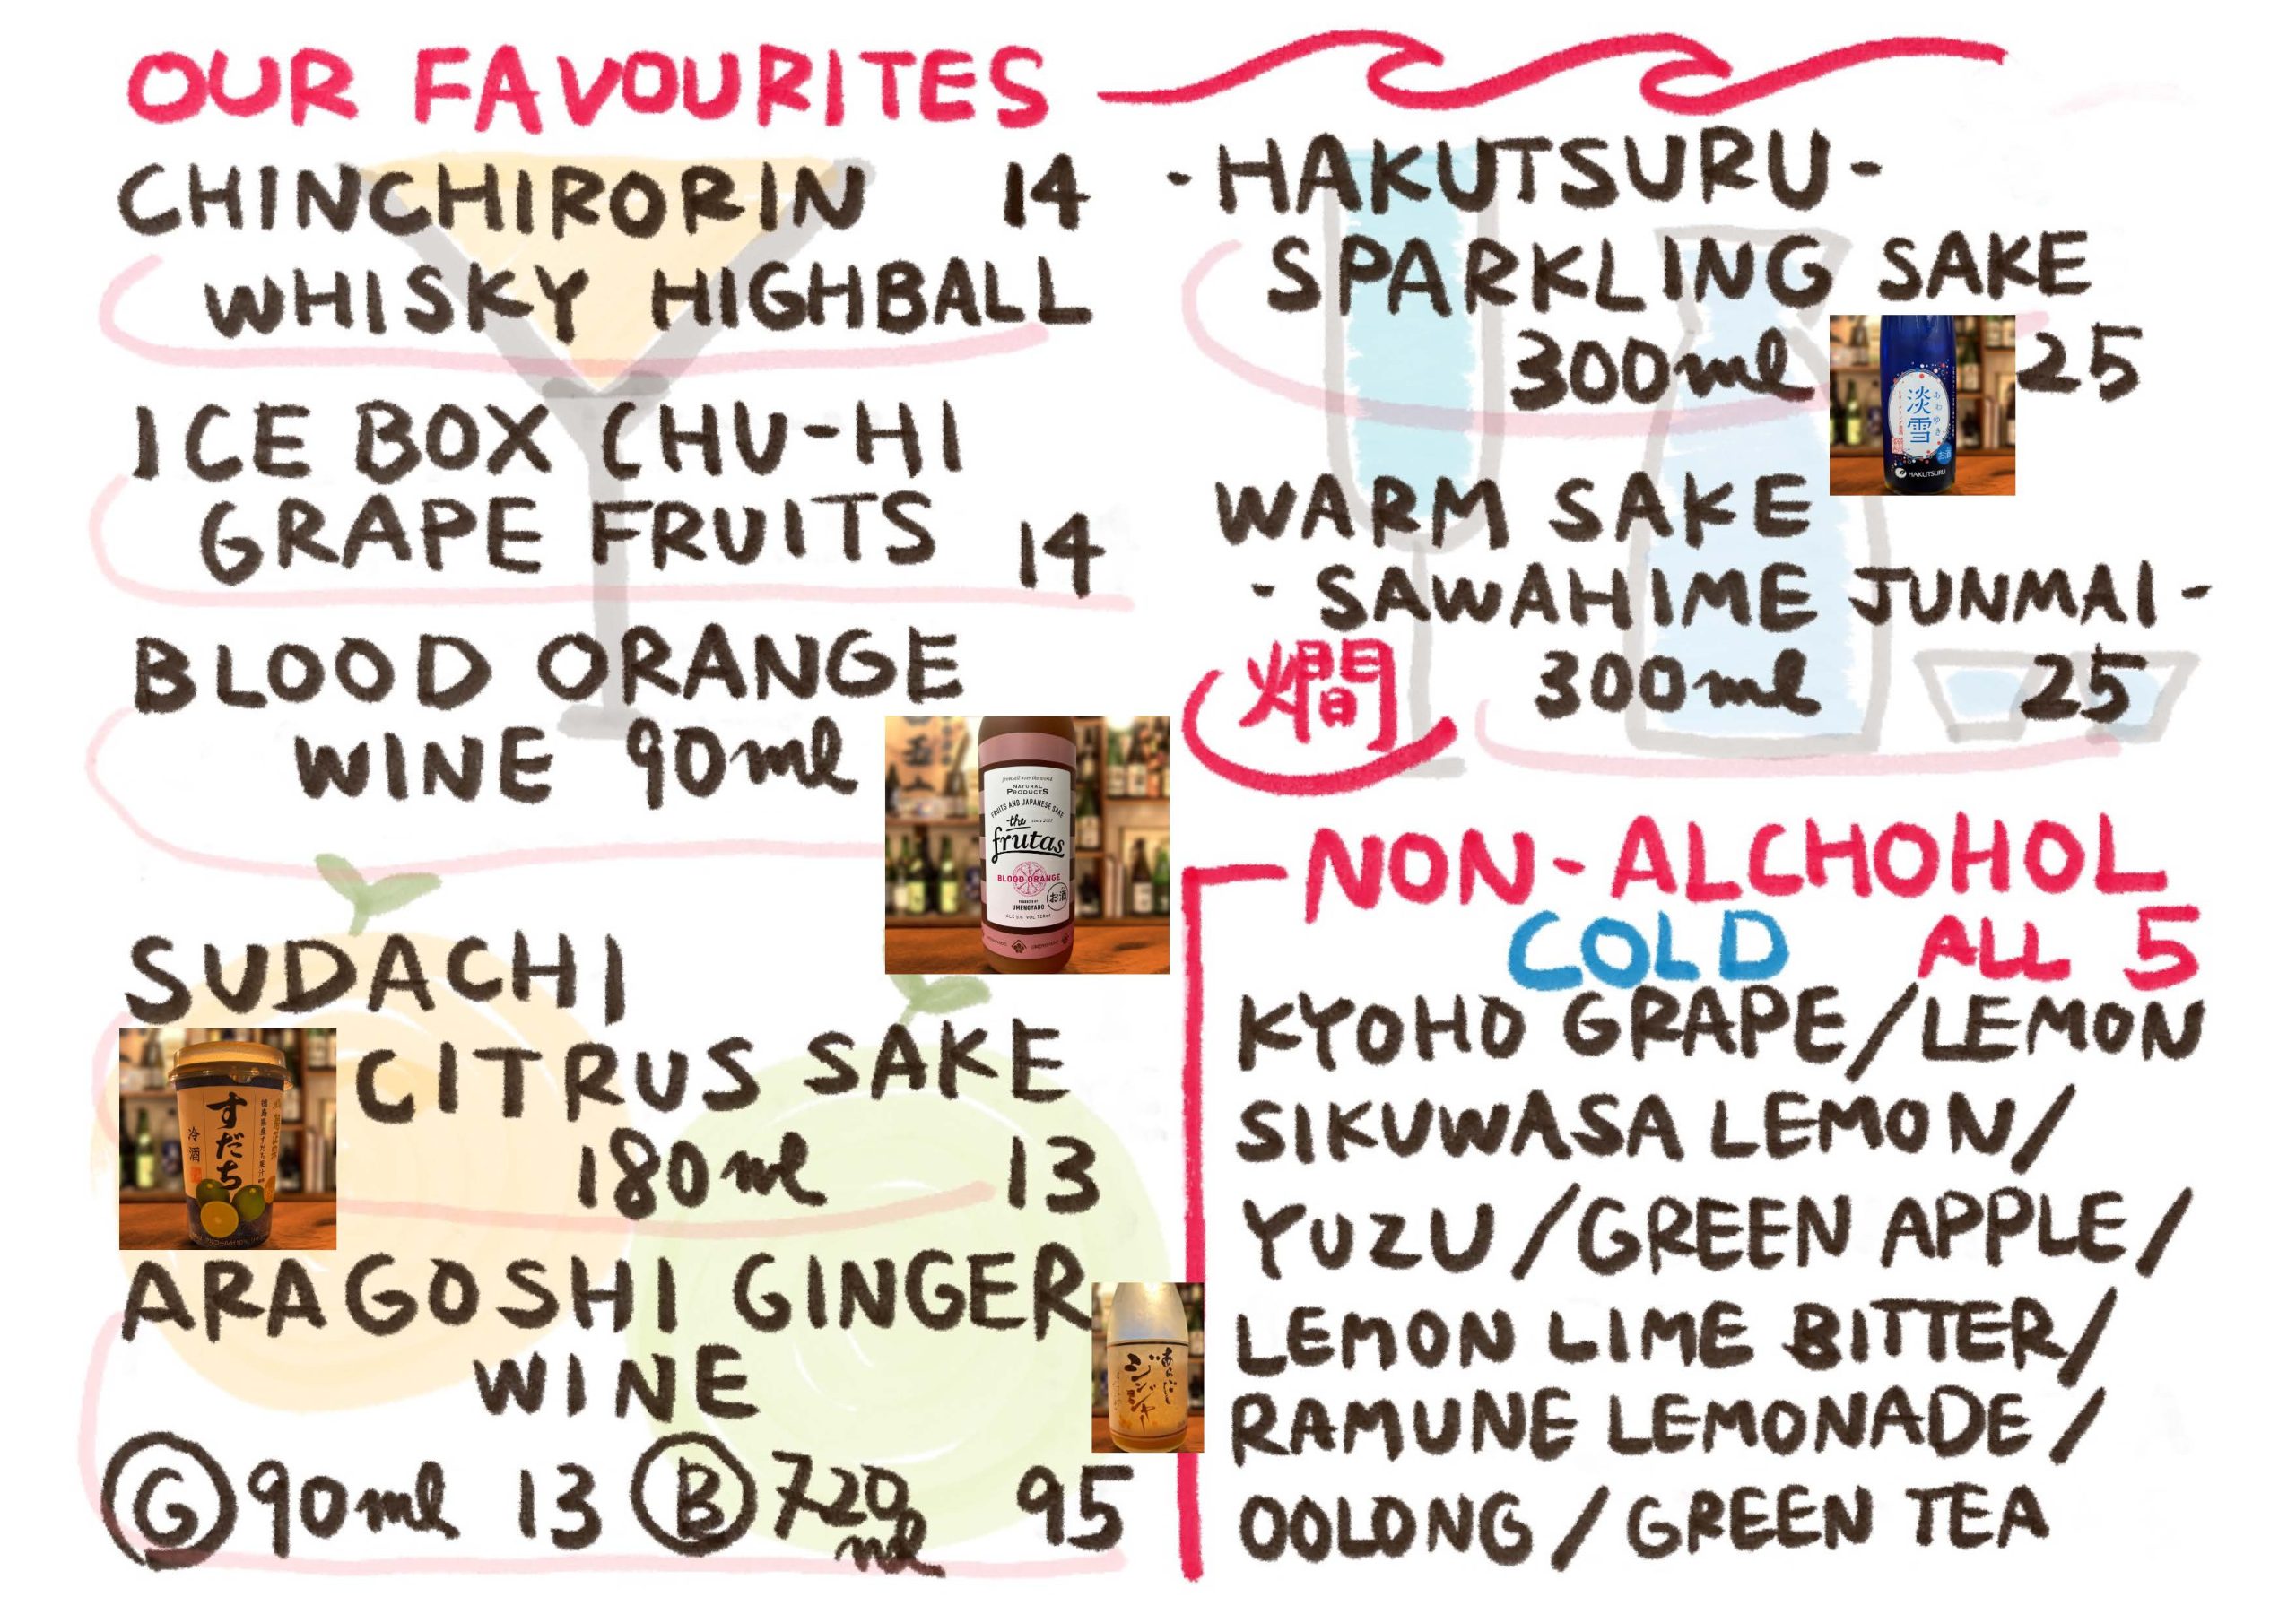 OUR FAVOURITES
CHINCHIRORIN 14
WHISKY HIGHBALL
ICE BOX CHU-HI
GRAPE FRUITS 14
BLOOD ORANGE
WINE 90ml
from all over the world
NATURAL
PRODUCTS
FRUITS AND JAPANESE SAKE
the
frutas
BLOOD ORANGE
UMENOYADO
お酒
SUDACHI
CITRUS SAKE
180ml 13
すだち
冷酒
ARAGOSHI GINGER
WINE
あらごし
ジンジャー
G 90ml 13 B 720ml 95
-HAKUTSURU-
SPARKLING SAKE
300ml 25
淡雪
あわゆき
お酒
HAKUTSURU
WARM SAKE
- SAWAHIME JUNMAI -
燗 300ml 25
NON-ALCHOHOL
COLD ALL 5
KYOHO GRAPE/LEMON
SIKUWASA LEMON/
YUZU/GREEN APPLE/
LEMON LIME BITTER/
RAMUNE LEMONADE/
OOLONG/GREEN TEA